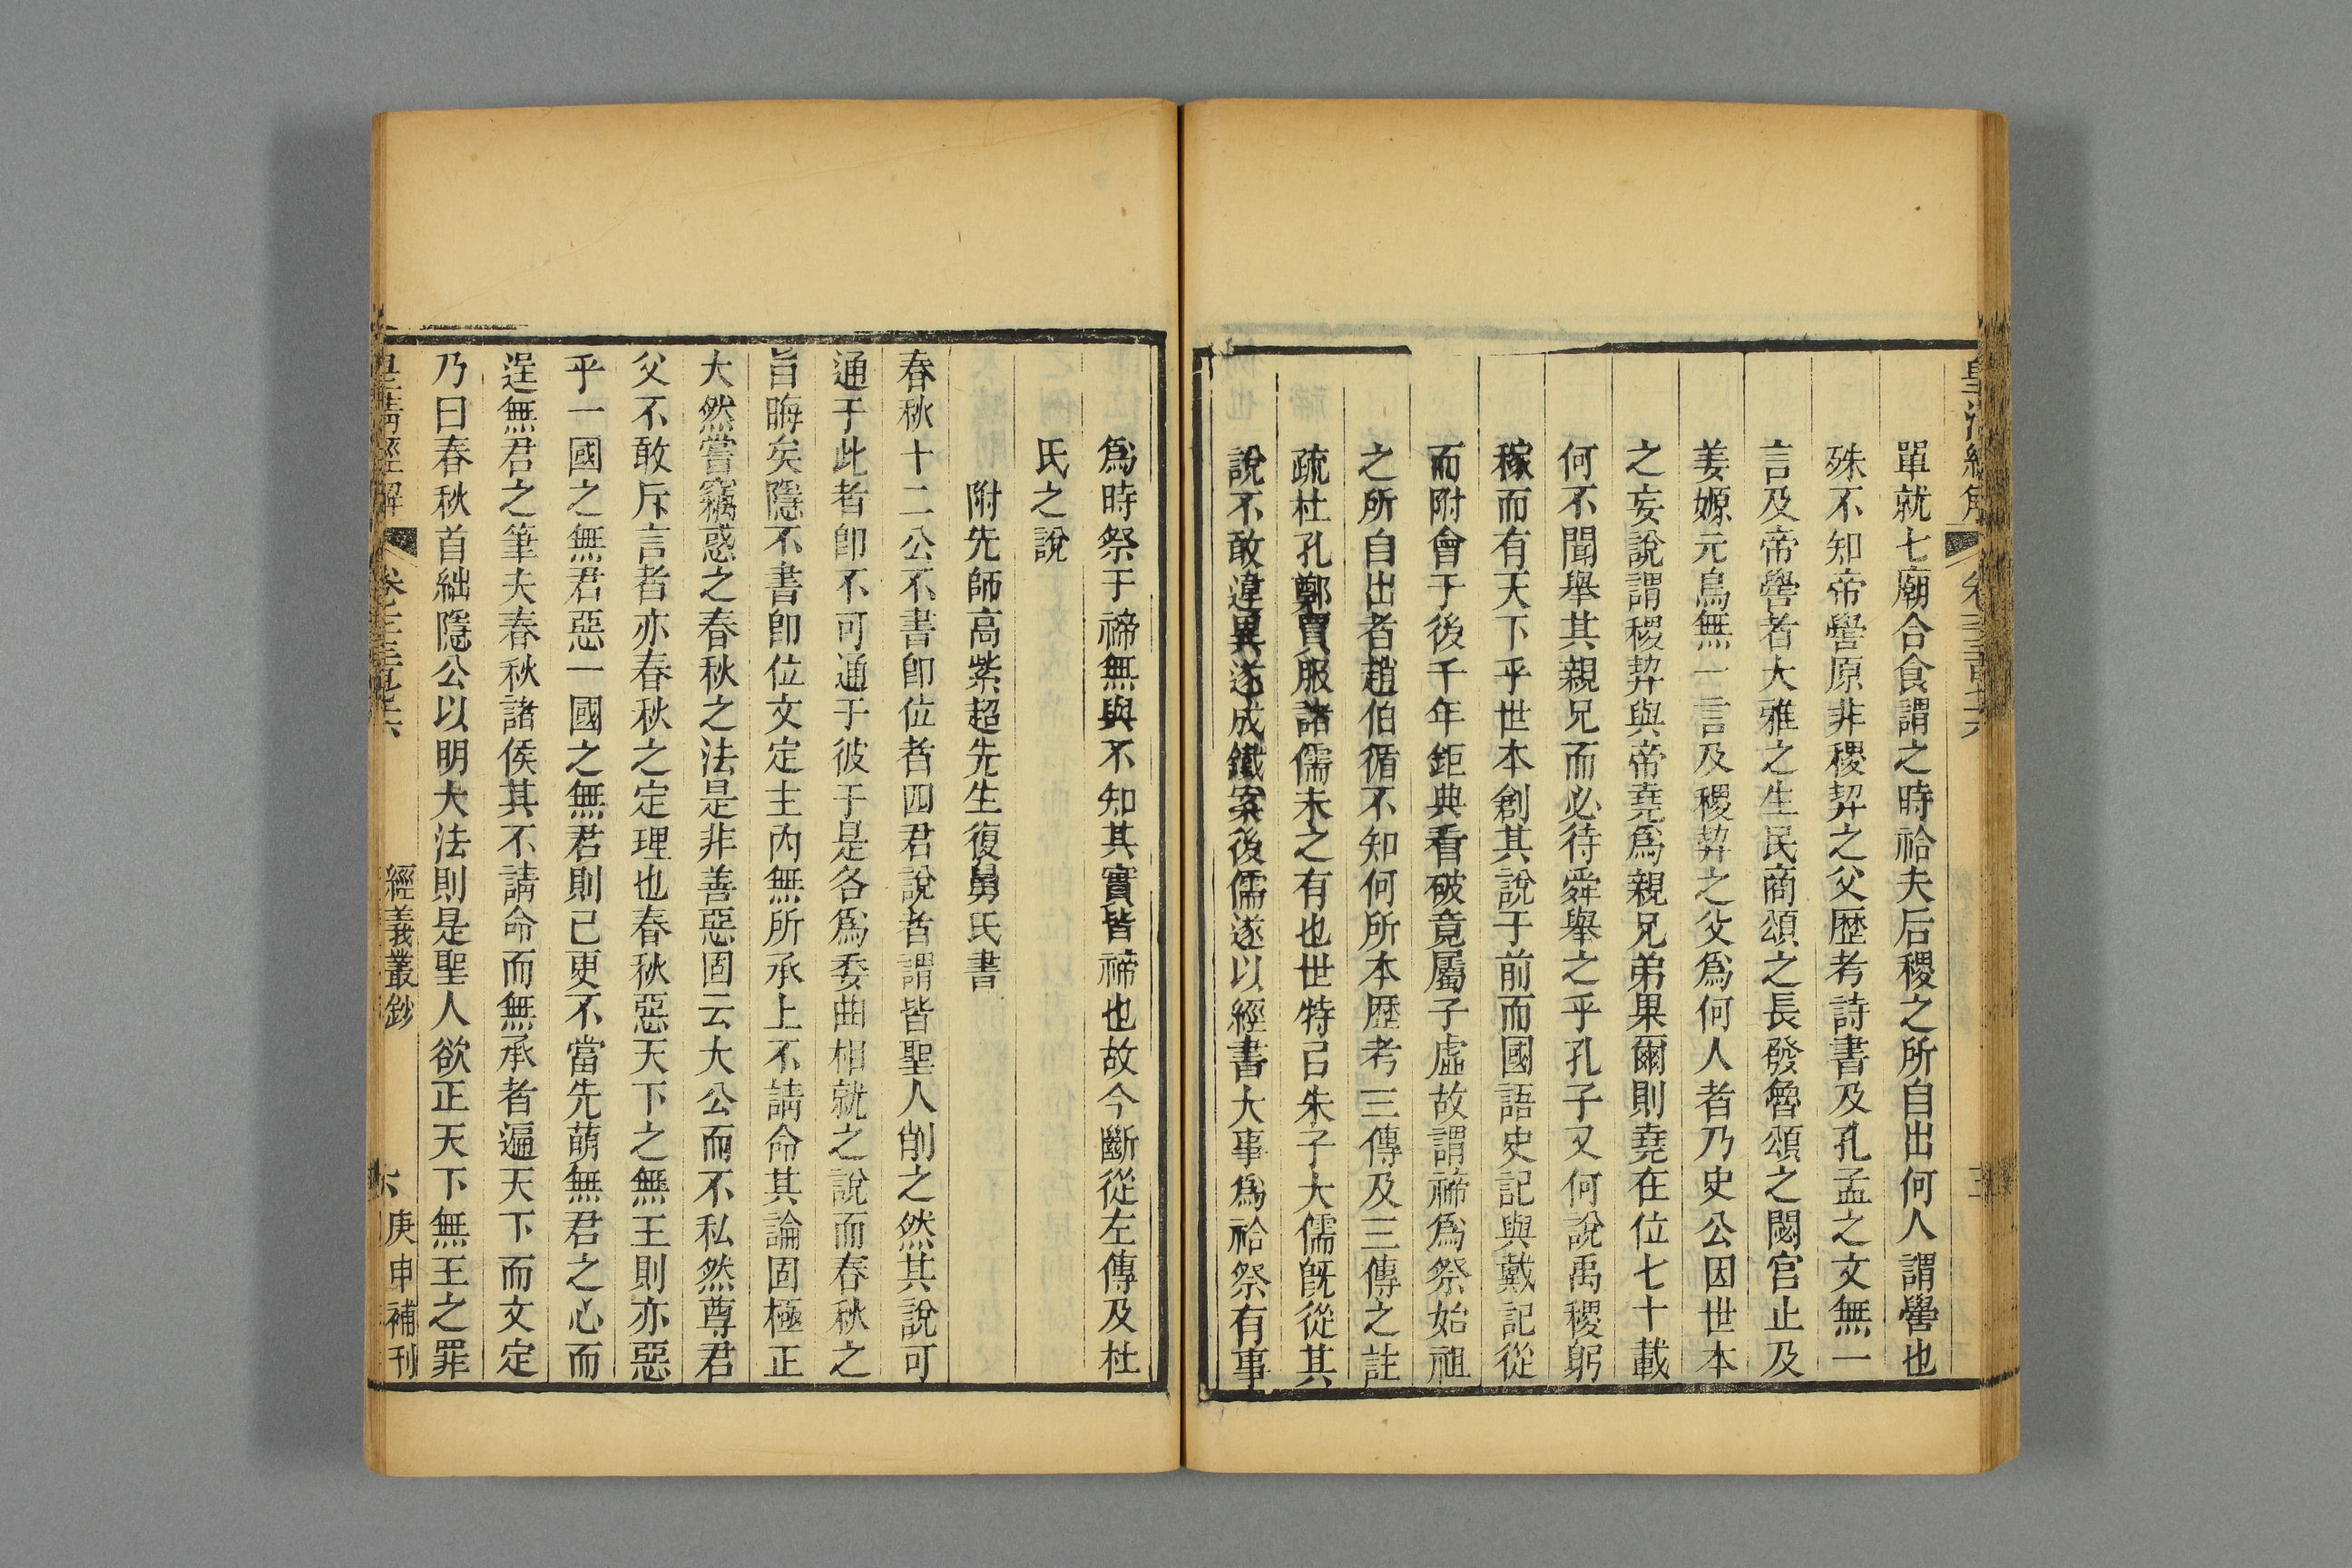 單就七廟合食謂之時祫夫后稷之所自出何人謂嚳也
殊不知帝嚳原非稷契之父歴考詩書及孔孟之文無一
言及帝嚳者大雅之生民商頌之長發魯頌之閟宮止及
姜嫄元鳥無一言及稷契之父爲何人者乃史公因世本
之妄說謂稷契與帝堯爲親兄弟果爾則堯在位七十載
何不聞舉其親兄而必待舜舉之乎孔子又何說禹稷躬
稼而有天下乎世本創其說于前而國語史記與戴記從
而附會于後千年鉅典看破竟屬子虛故謂禘爲祭始祖
之所自出者趙伯循不知何所本歴考三傳及三傳之註
疏杜孔鄭賈服諸儒未之有也世特㠯朱子大儒旣從其
說不敢違異遂成鐵案後儒遂以經書大事爲祫祭有事
爲時祭于禘無與不知其實皆禘也故今斷從左傳及杜
氏之說
附先師高紫超先生復舅氏書
春秋十二公不書卽位者四君說者謂皆聖人削之然其說可
通于此者卽不可通于彼于是各爲委曲相就之說而春秋之
旨晦矣隱不書卽位文定主內無所承上不請命其論固極正
大然嘗竊惑之春秋之法是非善惡固云大公而不私然尊君
父不敢斥言者亦春秋之定理也春秋惡天下之無王則亦惡
乎一國之無君惡一國之無君則已更不當先萌無君之心而
逞無君之筆夫春秋諸侯其不請命而無承者遍天下而文定
乃曰春秋首絀隱公以明大法則是聖人欲正天下無王之罪
皇清經解 經義叢鈔 庚申補刊